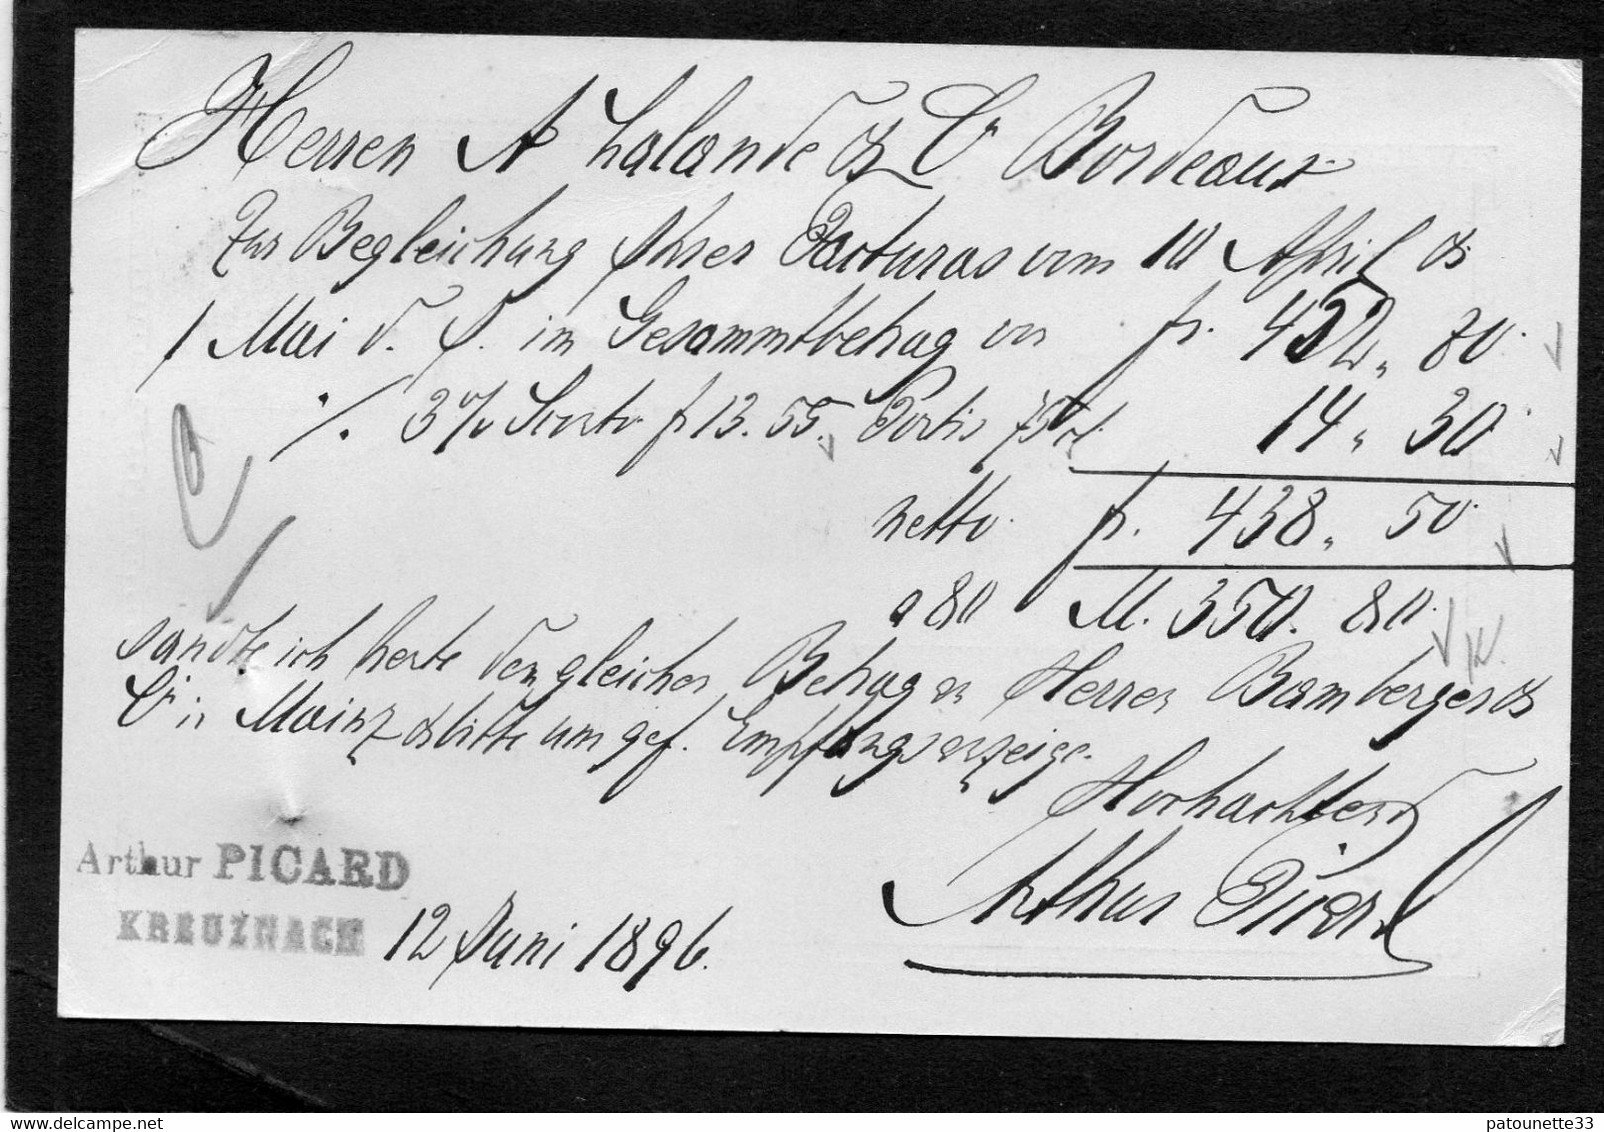 Herren A Lalande & Cie Bordeaux
Zur Begleichung Ihrer Facturas vom 10 April &
1 Mai d. J. in Gesammtbetrag von fr. 452, 80.
./. 3% Sconto fr 13.55. Porti 75 14, 30
netto fr. 438, 50
a 80 M. 350. 80
sandte ich heute den gleichen Betrag an Herren Bamberger &
Cie in Mainz & bitte um gef. Empfangsanzeige.
Hochachtend
Arthur Picard
Arthur PICARD
KREUZNACH
12 Juni 1896.
delcampe.net
patounette33